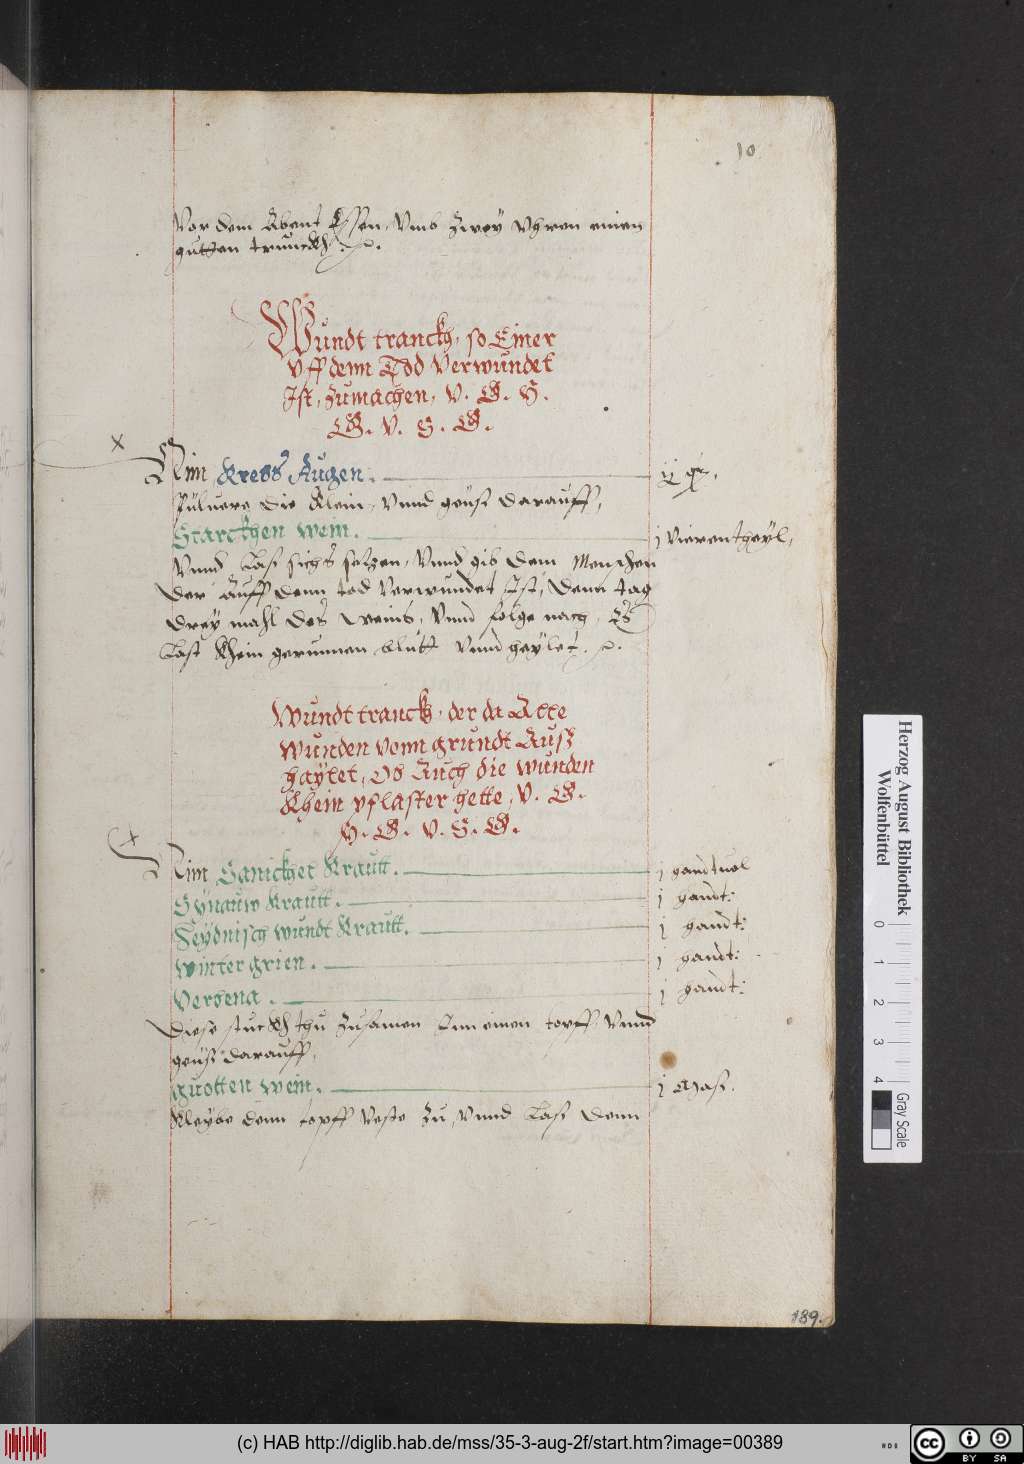 10
Vor dem Abent Essen, Vmb Zwey Vhren einen
gutten trunckh
Wundt tranckh, so Einer
vff denn Tod Verwundet
Ist, Zumachen, V. G. S.
G. V. S. G.
Nim Krebs Augen.
Puluere die klein, Vnnd geuß darauff,
Starckhen wein. j Vierentheyl,
Vnnd Laß sichs setzen, Vnnd gib dem Menschen
der Auff denn tod Verwundet Ist, denn tag
drey mahl des weins, Vnnd folge nach, Es
Last khein gerunnen blutt Vnnd heylet.
Wundt tranckh, der da Alle
wunden vonn grundt Auß
haylet, Ob Auch die wunden
khein pflaster hette, V. G.
S. G. V. S. G.
Nim Sanickhel Krautt. j handtuol
Synauw Krautt. j handt:
Heydnisch wundt Krautt. j handt:
winter grien. j handt:
Verbena. j handt:
Diese stuckh thu Zusamen Inn einen topff, Vnnd
geuß darauff,
guotten wein. j Maß.
Kleybe denn topff Veste Zu, Vnnd Laß denn
189.
Herzog August Bibliothek
Wolfenbüttel
0 1 2 3 4
Gray Scale
(c) HAB http://diglib.hab.de/mss/35-3-aug-2f/start.htm?image=00389
cc BY SA